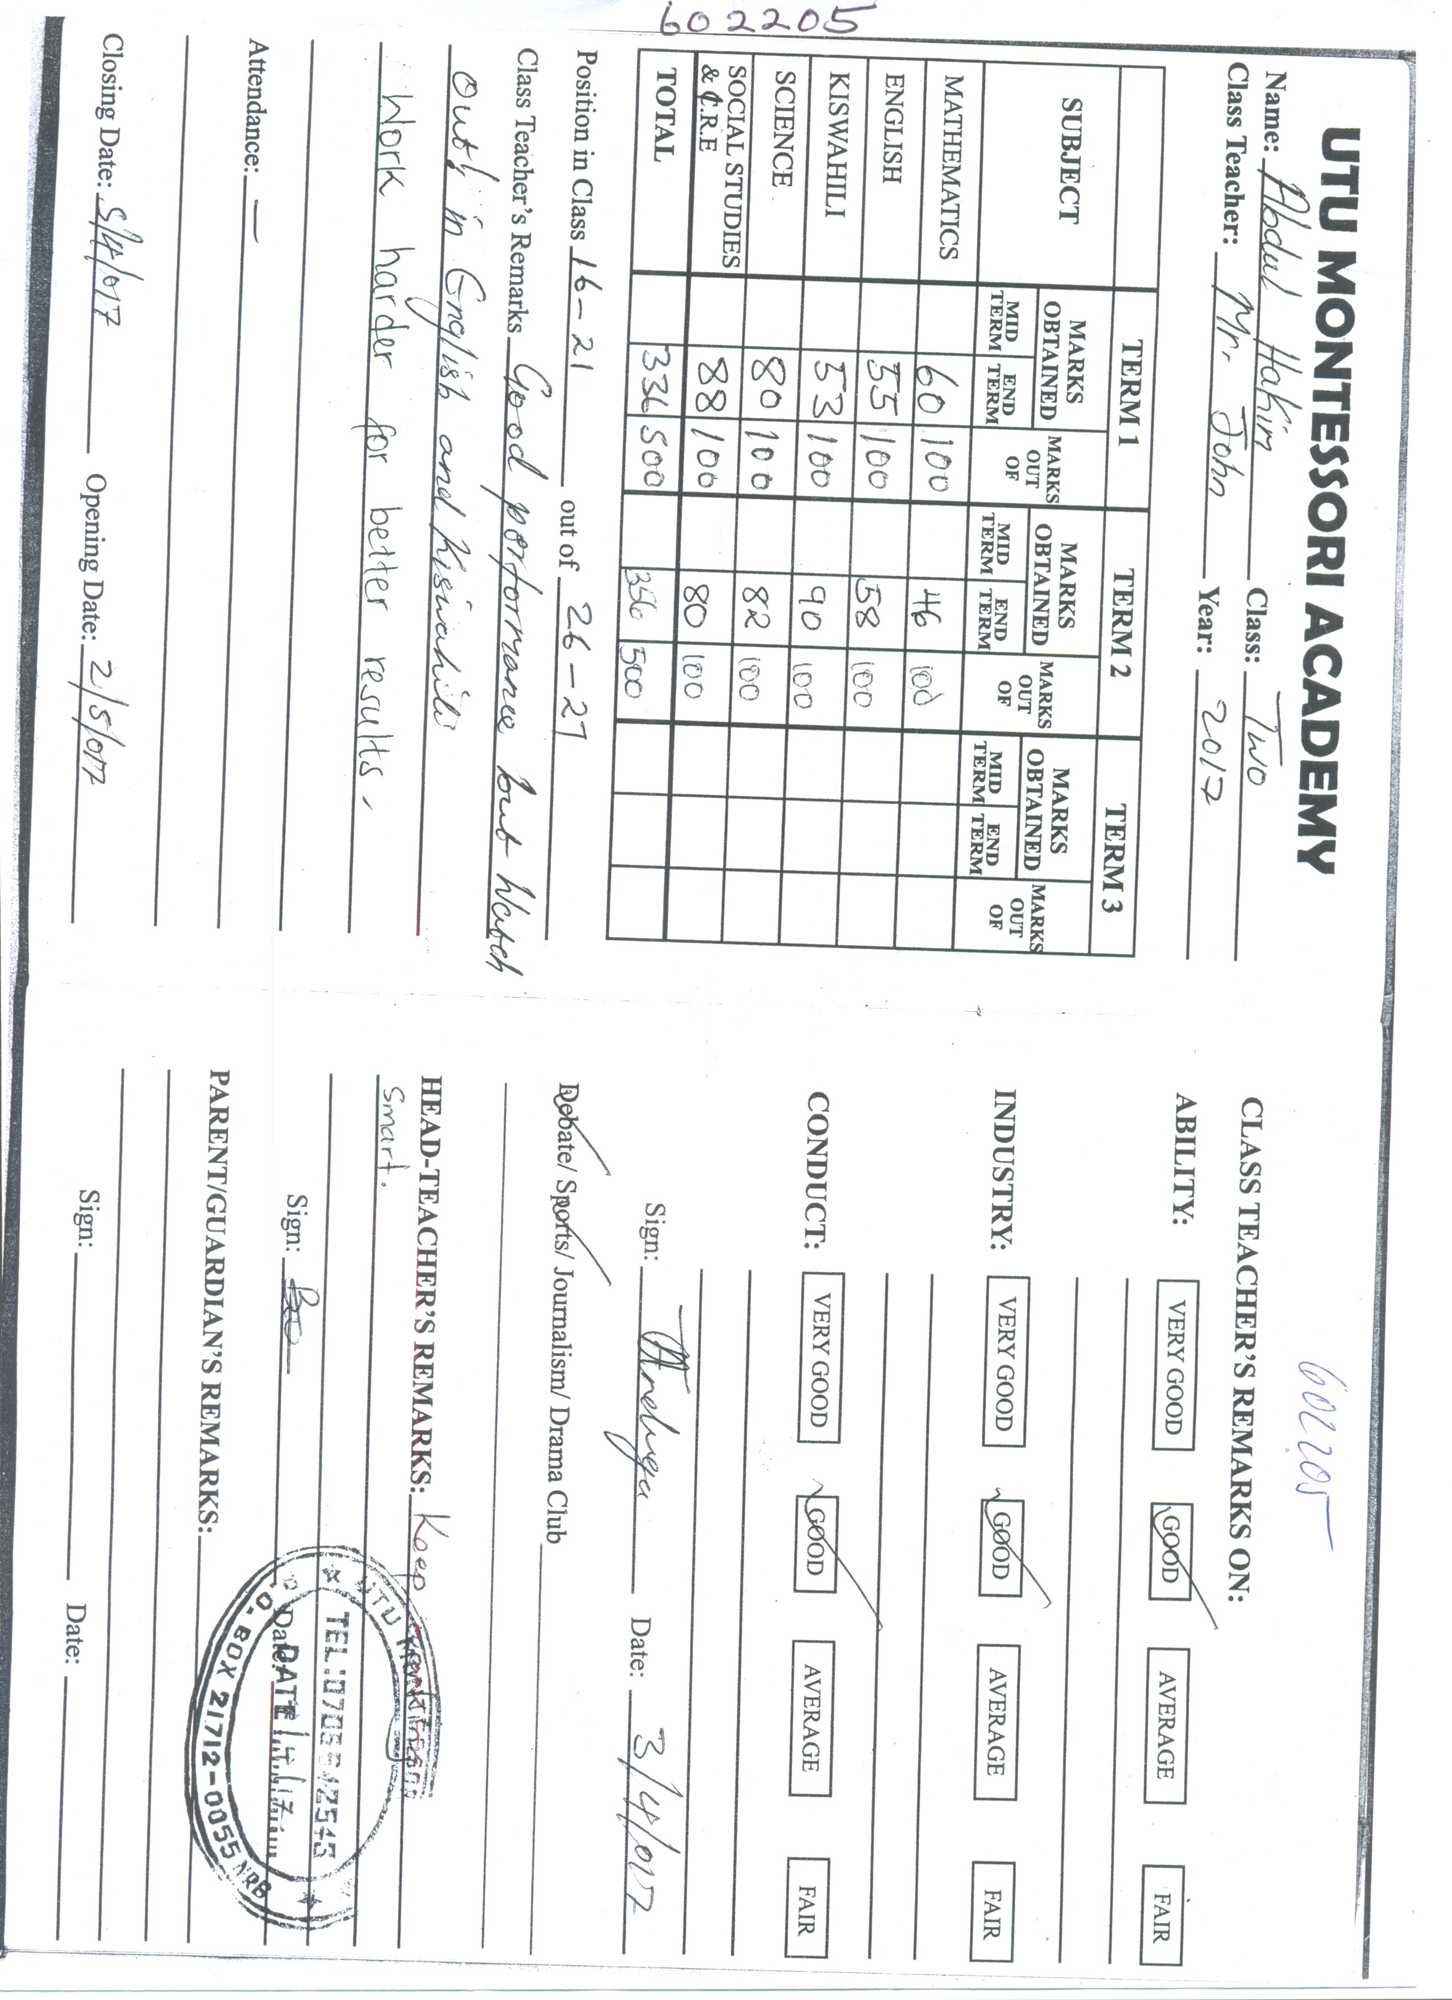 602205
UTU MONTESSORI ACADEMY
Name: Abdul Hakim Class: Two
Class Teacher: Mr. John Year: 2017
SUBJECT TERM 1 TERM 2 TERM 3
MARKS OBTAINED MARKS OUT OF MARKS OBTAINED MARKS OUT OF MARKS OBTAINED MARKS OUT OF
MID TERM END TERM MID TERM END TERM MID TERM END TERM
MATHEMATICS 60 100 46 100
ENGLISH 55 100 58 100
KISWAHILI 53 100 90 100
SCIENCE 80 100 82 100
SOCIAL STUDIES & C.R.E 88 100 80 100
TOTAL 336 500 356 500
Position in Class 16-21 out of 26-27
Class Teacher's Remarks Good performance but Watch
out! in English and Kiswahili
Work harder for better results.
Attendance: —
Closing Date: 5/4/017 Opening Date: 2/5/017
602205
CLASS TEACHER'S REMARKS ON:
ABILITY: VERY GOOD GOOD AVERAGE FAIR
INDUSTRY: VERY GOOD GOOD AVERAGE FAIR
CONDUCT: VERY GOOD GOOD AVERAGE FAIR
Sign: Date: 3/4/017
Debate/ Sports/ Journalism/ Drama Club
HEAD-TEACHER'S REMARKS: Keep
smart.
Sign: Date:
UTU
TEL:0706
DATE
P.O. BOX 21712-0055 NRB
PARENT/GUARDIAN'S REMARKS:
Sign: Date: